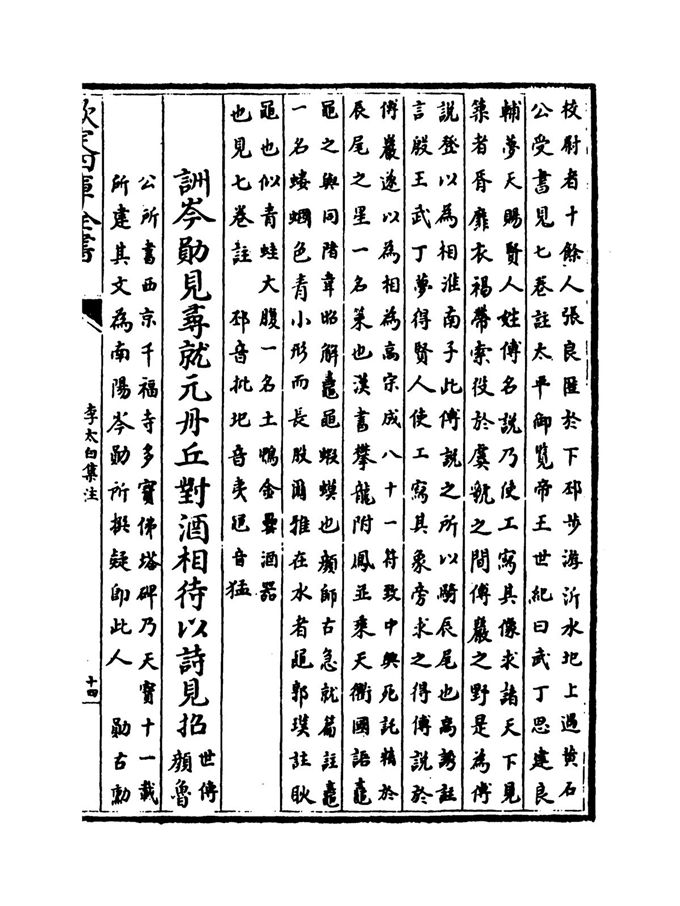 校尉者十餘人張良匿於下邳步游沂水圯上遇黃石
公受書見七卷註太平御覽帝王世紀曰武丁思建良
輔夢天賜賢人姓傅名說乃使工寫其像求諸天下見
築者胥靡衣褐帶索役於虞虢之間傅巖之野是為傅
說登以為相淮南子此傅說之所以騎辰尾也高誘註
言殷王武丁夢得賢人使工寫其象旁求之得傅說於
傅巖遂以為相為高宗成八十一符致中興死託精於
辰尾之星一名策也漢書攀龍附鳳並乘天衢國語鼃
黽之與同陼韋昭解鼃黽蝦蟆也顏師古急就篇註鼃
一名螻蟈色青小形而長股爾雅在水者黽郭璞註耿
黽也似青蛙大腹一名土鴨金罍酒器
也見七卷註 邳音批圯音夷黽音猛
詶岑勛見尋就元丹丘對酒相待以詩見招
世傳
顏魯
公所書西京千福寺多寶佛塔碑乃天寶十一載
所建其文為南陽岑勛所撰疑即此人 勛古勳
欽定四庫全書
李太白集注
十四